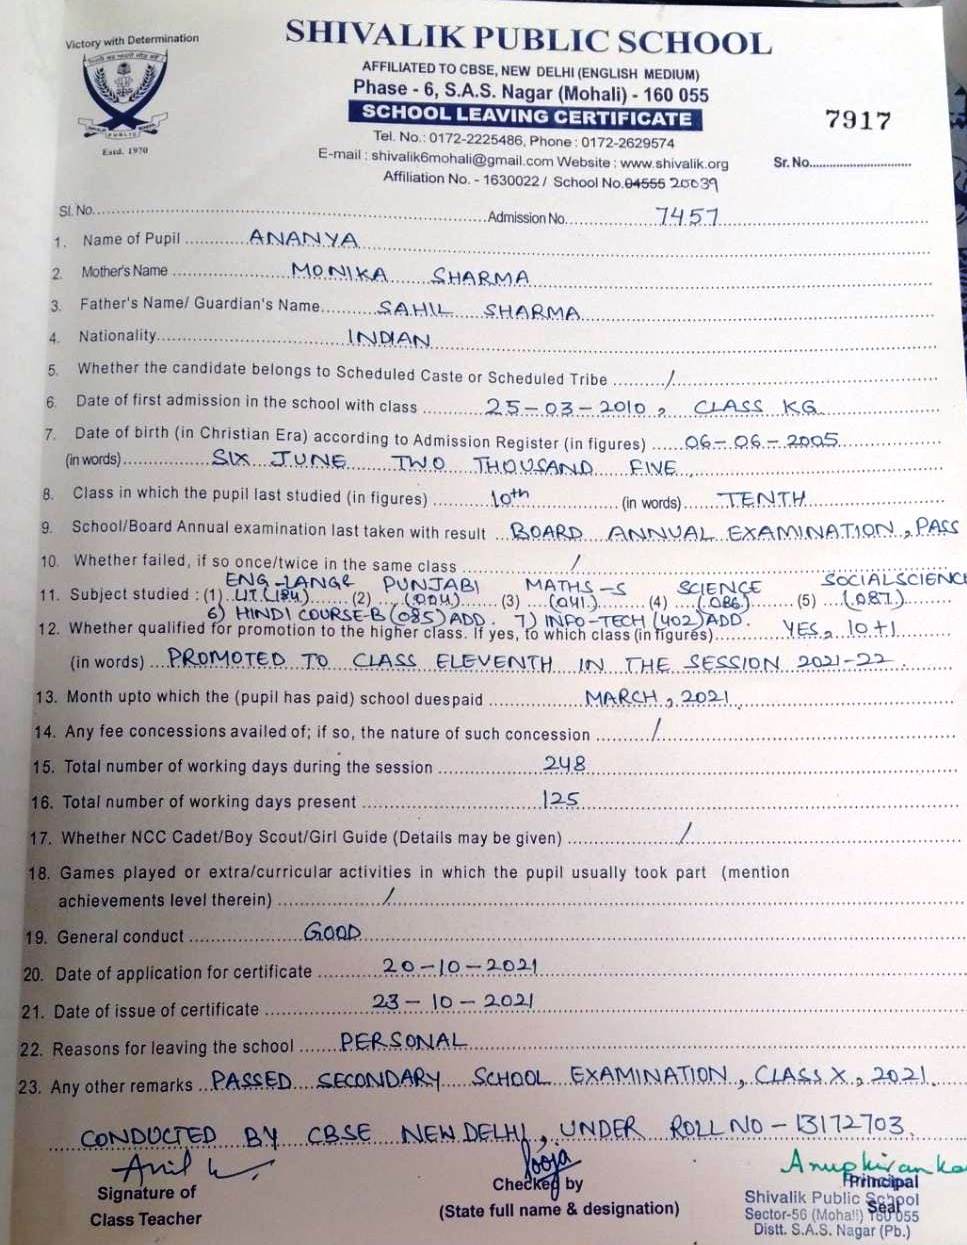 Victory with Determination
SHIVALIK PUBLIC SCHOOL
AFFILIATED TO CBSE, NEW DELHI (ENGLISH MEDIUM)
Phase - 6, S.A.S. Nagar (Mohali) - 160 055
SCHOOL LEAVING CERTIFICATE
7917
Tel. No.: 0172-2225486, Phone : 0172-2629574
PUBLIC
Estd. 1970
E-mail : shivalik6mohali@gmail.com Website : www.shivalik.org
Sr. No.
Affiliation No. - 1630022 / School No. 04555 20039
Sl. No. Admission No. 7457
1. Name of Pupil ANANYA
2. Mother's Name MONIKA SHARMA
3. Father's Name/ Guardian's Name SAHIL SHARMA
4. Nationality INDIAN
5. Whether the candidate belongs to Scheduled Caste or Scheduled Tribe /
6. Date of first admission in the school with class 25-03-2010, CLASS KG
7. Date of birth (in Christian Era) according to Admission Register (in figures) 06-06-2005
(in words) SIX JUNE TWO THOUSAND FIVE
8. Class in which the pupil last studied (in figures) 10th (in words) TENTH
9. School/Board Annual examination last taken with result BOARD ANNUAL EXAMINATION, PASS
10. Whether failed, if so once/twice in the same class /
ENG LANG& PUNJABI MATHS-S SCIENCE SOCIALSCIENCE
11. Subject studied : (1) LIT.(184) (2) (004) (3) (041) (4) (086) (5) (087)
6) HINDI COURSE-B (085) ADD. 7) INFO-TECH (402) ADD.
12. Whether qualified for promotion to the higher class. If yes, to which class (in figures) YES, 10+1
(in words) PROMOTED TO CLASS ELEVENTH IN THE SESSION 2021-22.
13. Month upto which the (pupil has paid) school duespaid MARCH, 2021
14. Any fee concessions availed of; if so, the nature of such concession /
15. Total number of working days during the session 248
16. Total number of working days present 125
17. Whether NCC Cadet/Boy Scout/Girl Guide (Details may be given) /
18. Games played or extra/curricular activities in which the pupil usually took part (mention
achievements level therein) /
19. General conduct GOOD
20. Date of application for certificate 20-10-2021
21. Date of issue of certificate 23-10-2021
22. Reasons for leaving the school PERSONAL
23. Any other remarks PASSED SECONDARY SCHOOL EXAMINATION, CLASS X, 2021.
CONDUCTED BY CBSE NEW DELHI, UNDER ROLL NO - 13172703.
Anil K Pooja Anupkiran Ka
Signature of Checked by Principal
Class Teacher (State full name & designation) Seal
Shivalik Public School
Sector-56 (Mohali) 160 055
Distt. S.A.S. Nagar (Pb.)